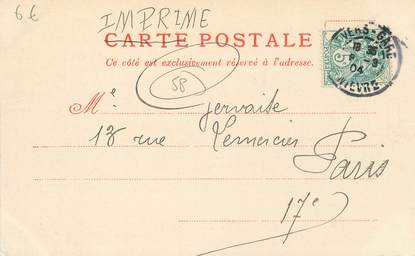 6€
IMPRIME
CARTE POSTALE
Ce côté est exclusivement réservé à l'adresse.
58
Mle Gervaise
18 rue Lemercier
Paris
17e
NEVERS-GARE
NIEVRE
5
04